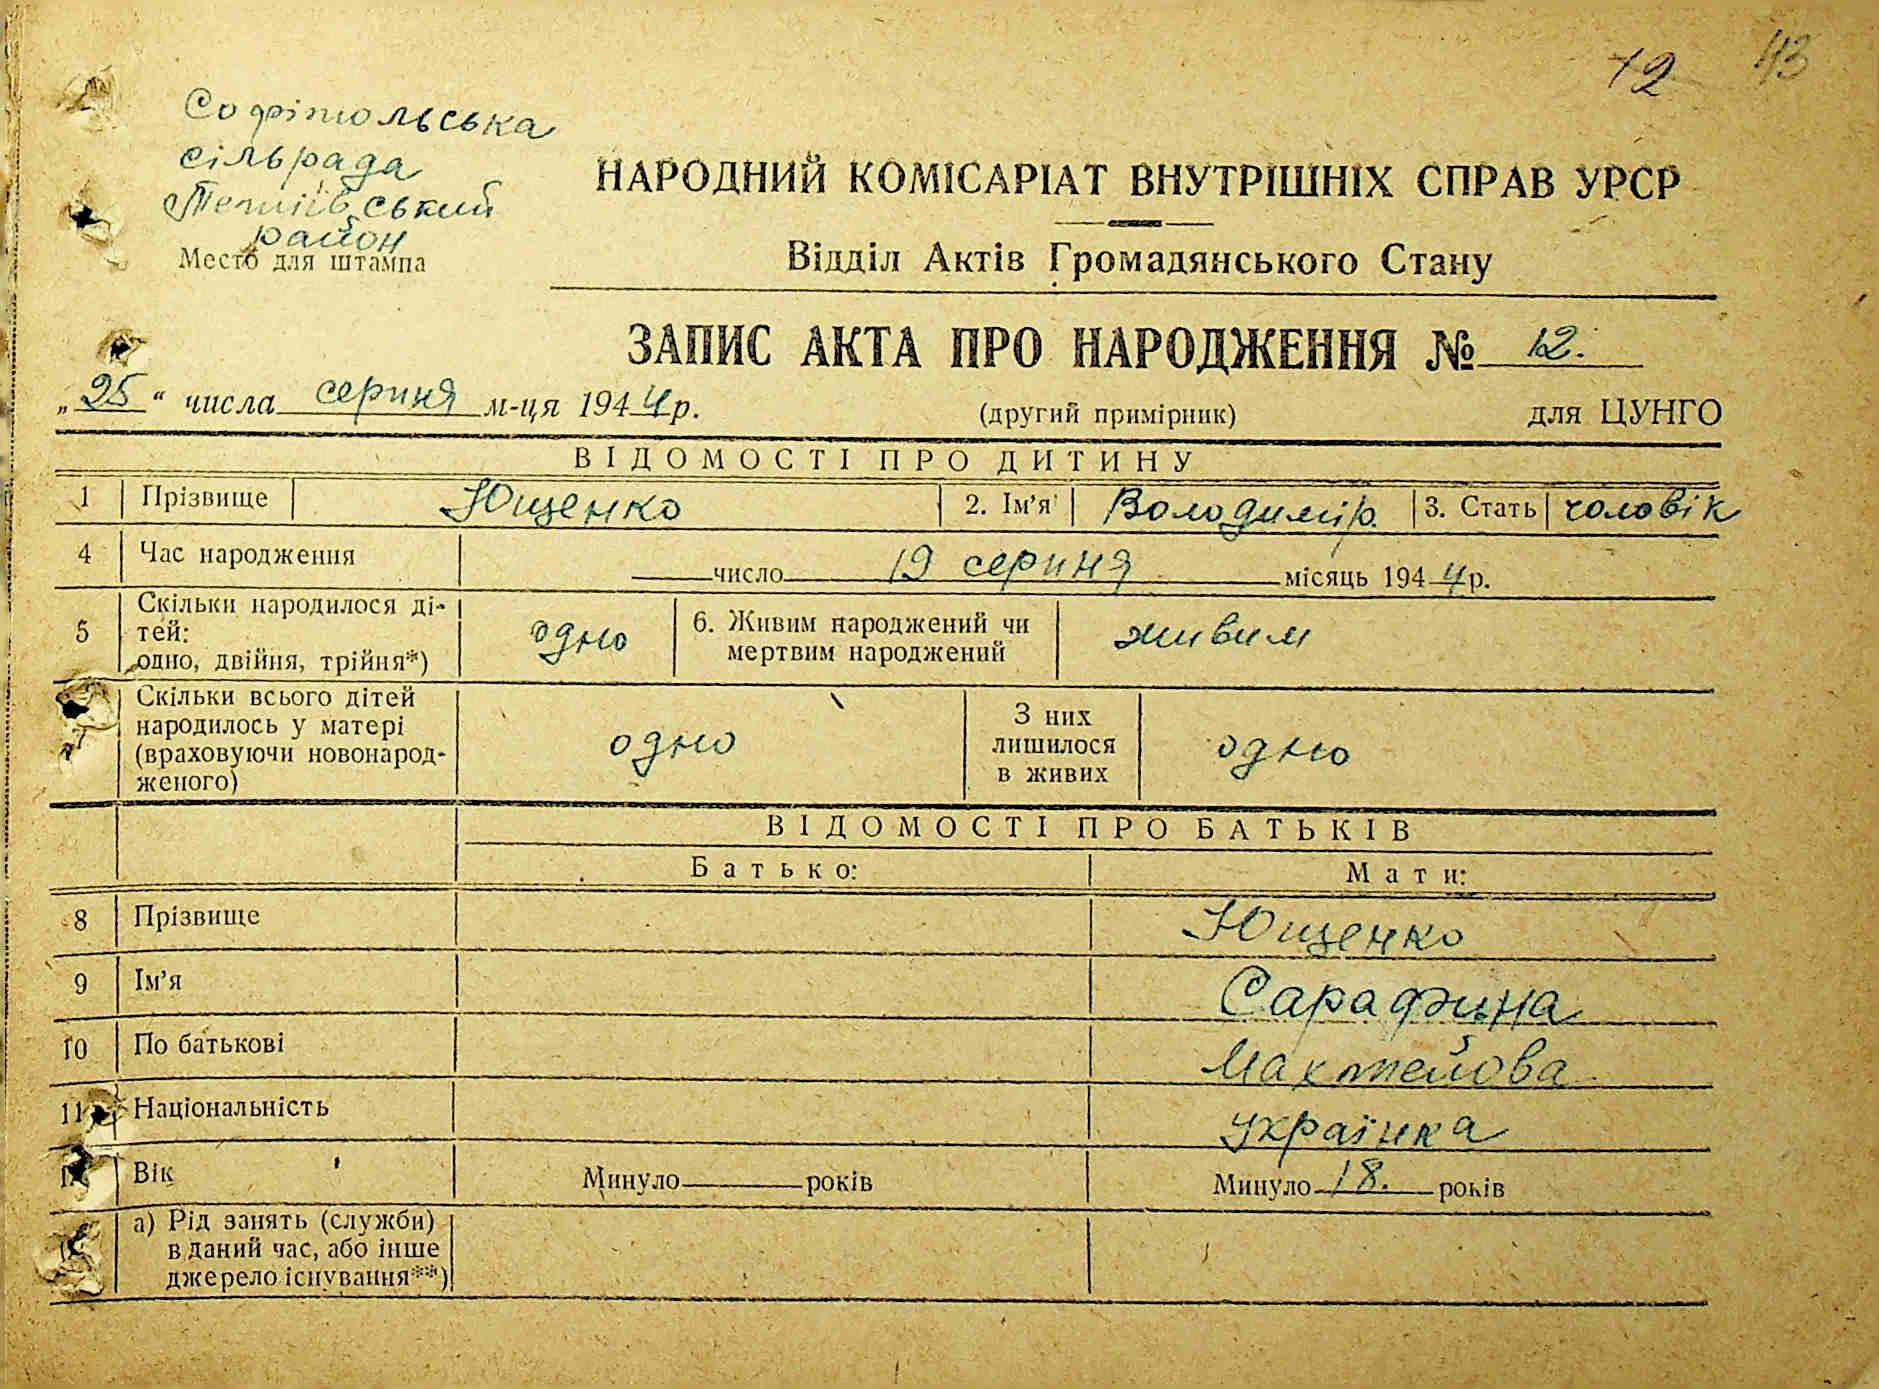 12 43
Софіпольська
сільрада
Тетіївський
район
Место для штампа
НАРОДНИЙ КОМІСАРІАТ ВНУТРІШНІХ СПРАВ УРСР
Відділ Актів Громадянського Стану
ЗАПИС АКТА ПРО НАРОДЖЕННЯ № 12.
„25“ числа серпня м-ця 1944 р. (другий примірник) для ЦУНГО
ВІДОМОСТІ ПРО ДИТИНУ
1 Прізвище Ющенко 2. Ім’я Володимір. 3. Стать чоловік
4 Час народження число 19 серпня місяць 1944 р.
5 Скільки народилося ді-
тей:
одно, двійня, трійня*) одно 6. Живим народжений чи
мертвим народжений живим
7 Скільки всього дітей
народилось у матері
(враховуючи новонарод-
женого) одно З них
лишилося
в живих одно
ВІДОМОСТІ ПРО БАТЬКІВ
Батько: Мати:
8 Прізвище Ющенко
9 Ім’я Сарафина
10 По батькові Мактейова
11 Національність українка
Вік Минуло років Минуло 18. років
а) Рід занять (служби)
в даний час, або інше
джерело існування**)